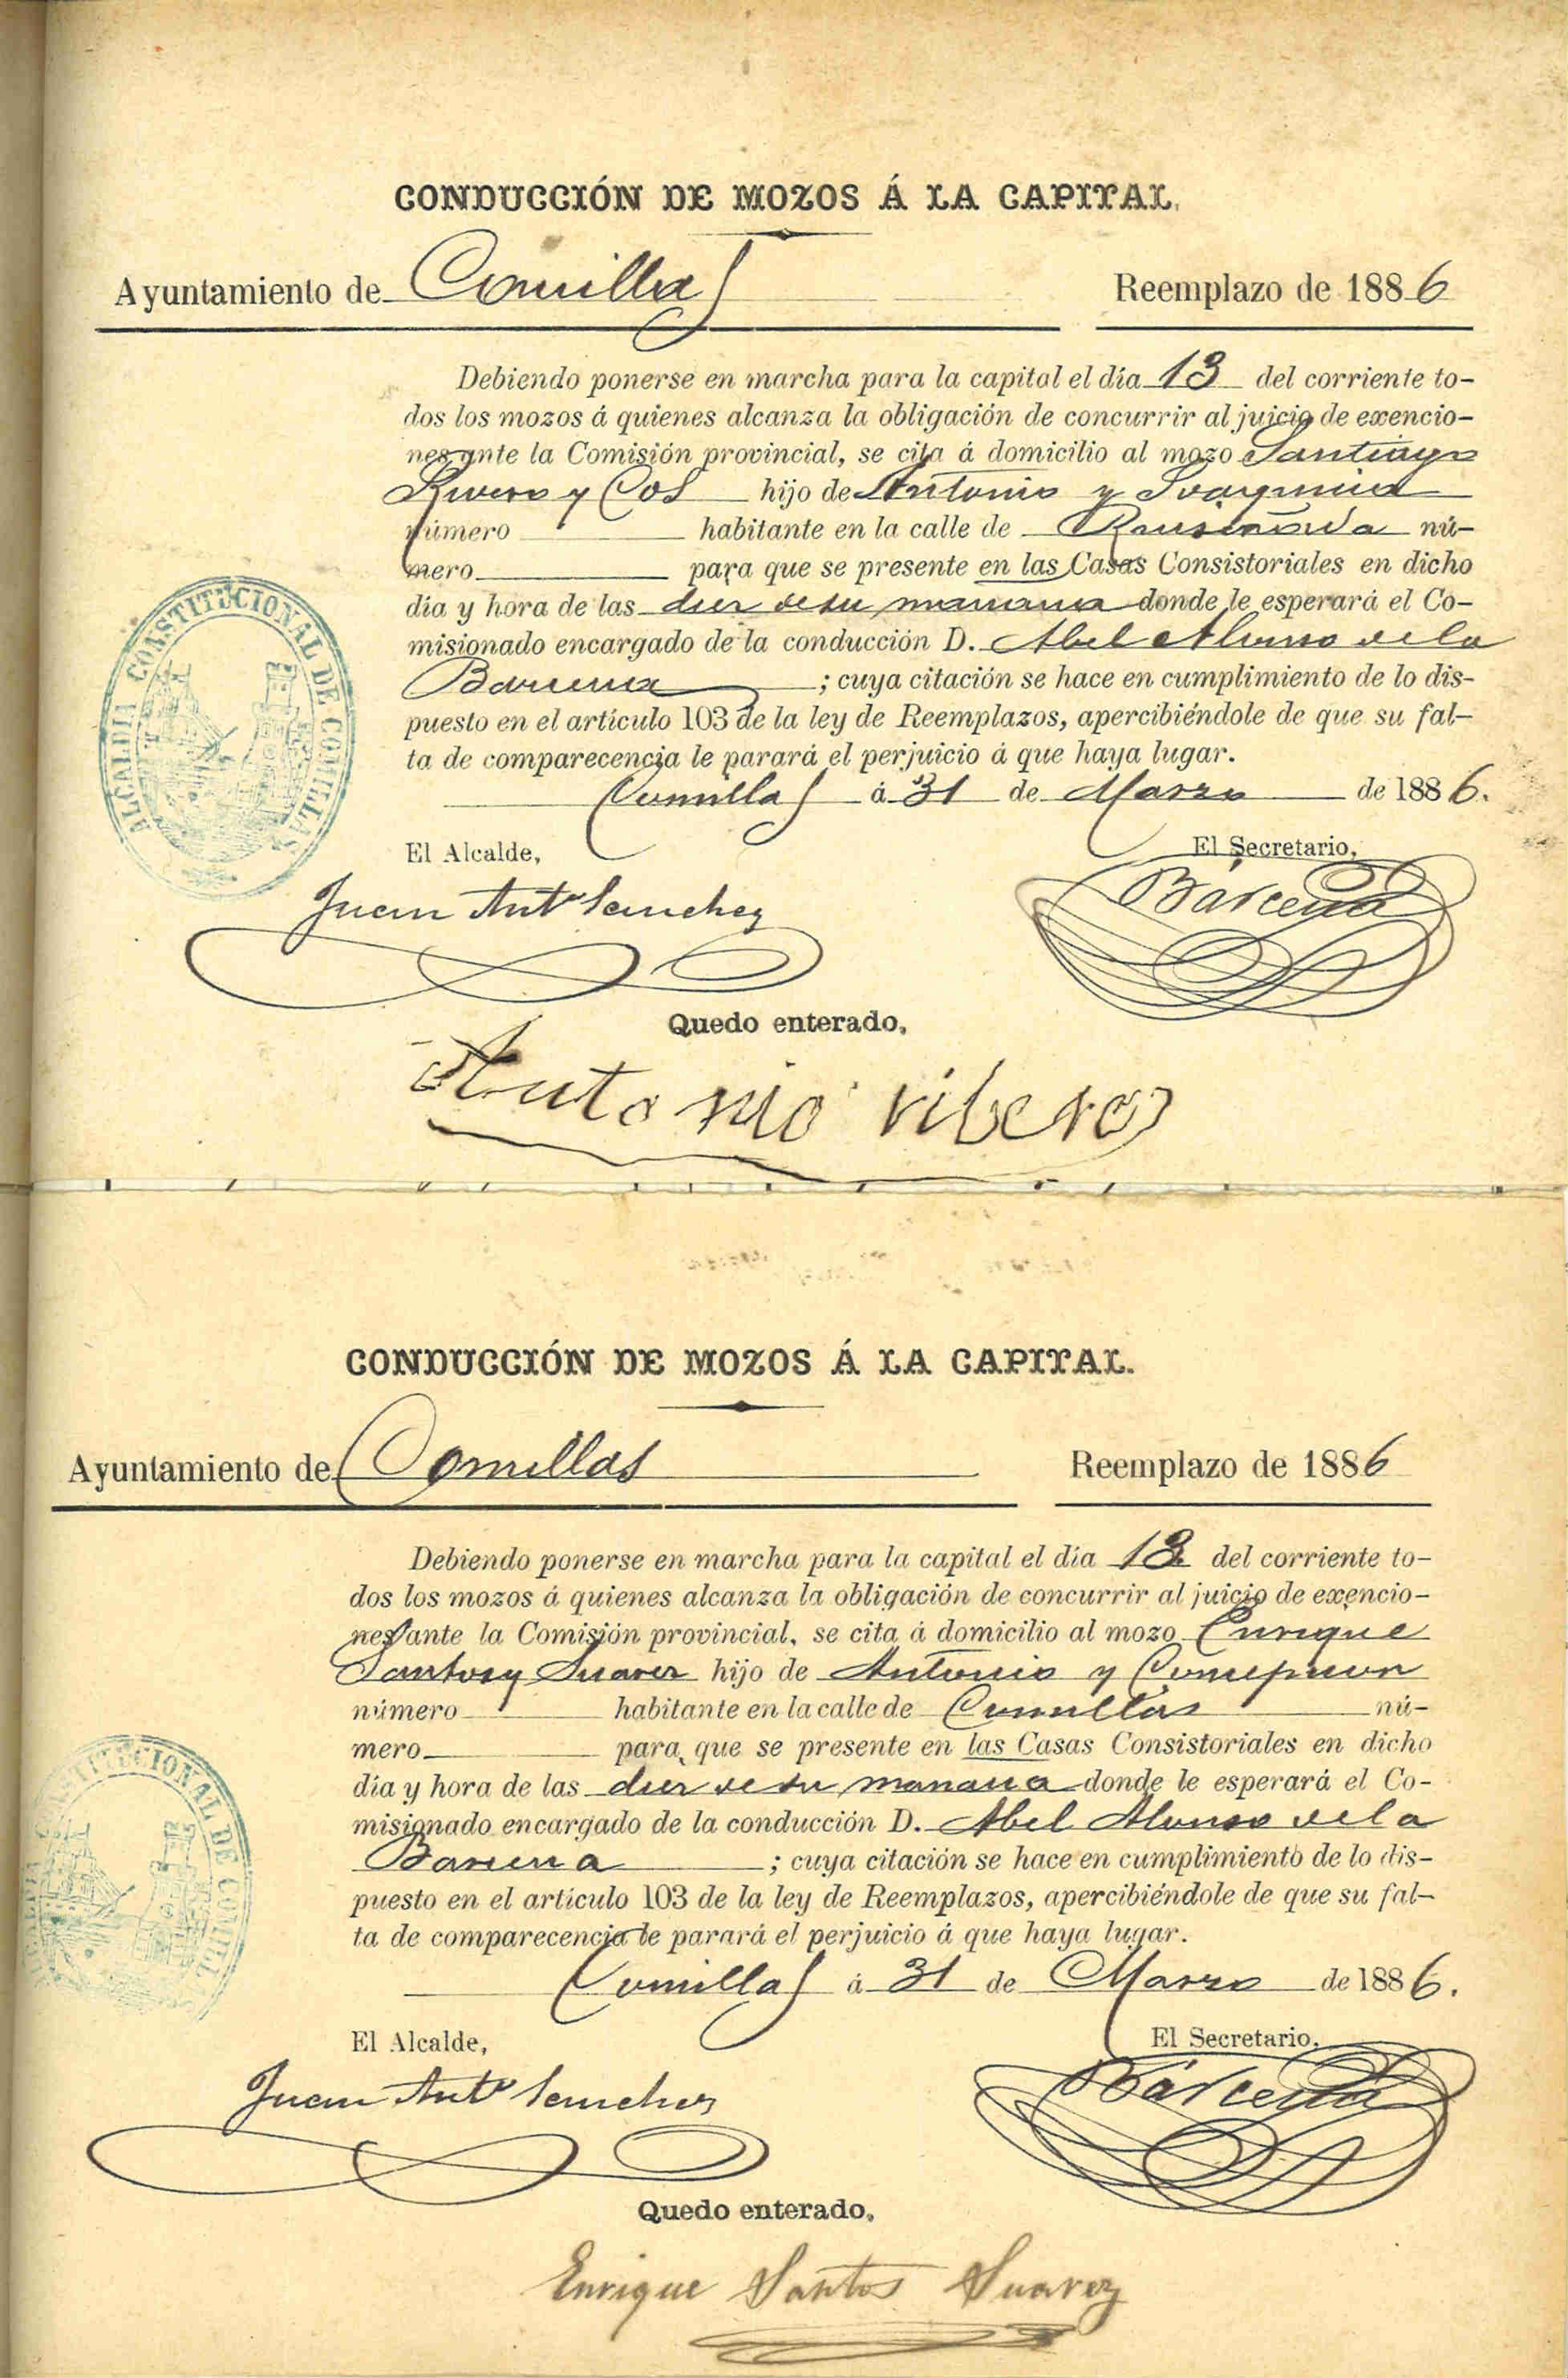 CONDUCCIÓN DE MOZOS Á LA CAPITAL.
Ayuntamiento de Comillas Reemplazo de 1886
Debiendo ponerse en marcha para la capital el día 13 del corriente to-
dos los mozos á quienes alcanza la obligación de concurrir al juicio de exencio-
nes ante la Comisión provincial, se cita á domicilio al mozo Santiago
Rivero y Cos hijo de Antonio y Joaquina
número habitante en la calle de nú-
mero para que se presente en las Casas Consistoriales en dicho
día y hora de las diez de su manana donde le esperará el Co-
misionado encargado de la conducción D. Abel Alonso de la
Barcena ; cuya citación se hace en cumplimiento de lo dis-
puesto en el artículo 103 de la ley de Reemplazos, apercibiéndole de que su fal-
ta de comparecencia le parará el perjuicio á que haya lugar.
Comillas á 31 de Marzo de 1886.
ALCALDIA CONSTITUCIONAL DE COMILLAS
El Alcalde, El Secretario,
Juan Anto Sanchez Bárcena
Quedo enterado,
Antonio ribero
CONDUCCIÓN DE MOZOS Á LA CAPITAL.
Ayuntamiento de Comillas Reemplazo de 1886
Debiendo ponerse en marcha para la capital el día 13 del corriente to-
dos los mozos á quienes alcanza la obligación de concurrir al juicio de exencio-
nes ante la Comisión provincial, se cita á domicilio al mozo Enrique
Santos y Suarez hijo de Antonio y Concepcion
número habitante en la calle de Comillas nú-
mero para que se presente en las Casas Consistoriales en dicho
día y hora de las diez de su manana donde le esperará el Co-
misionado encargado de la conducción D. Abel Alonso de la
Barcena ; cuya citación se hace en cumplimiento de lo dis-
puesto en el artículo 103 de la ley de Reemplazos, apercibiéndole de que su fal-
ta de comparecencia le parará el perjuicio á que haya lugar.
Comillas á 31 de Marzo de 1886.
CONSTITUCIONAL DE COMILL
El Alcalde, El Secretario,
Juan Anto Sanchez Bárcena
Quedo enterado,
Enrique Santos Suarez